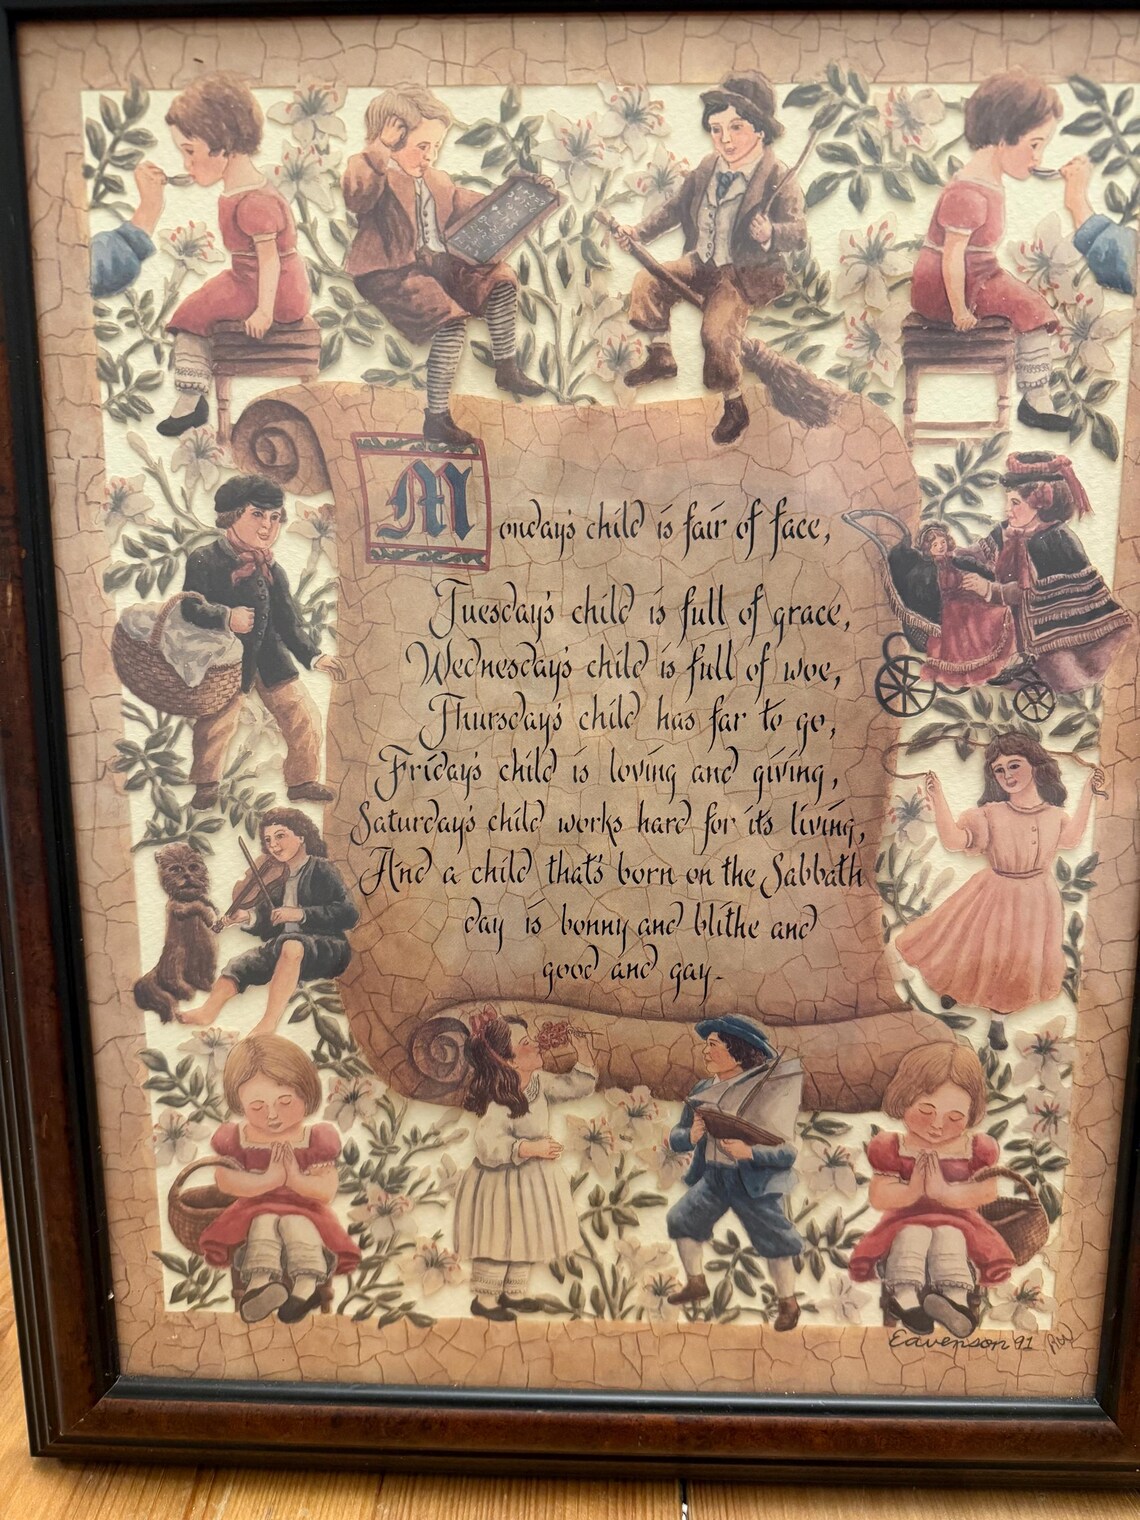 Monday's child is fair of face,
Tuesday's child is full of grace,
Wednesday's child is full of woe,
Thursday's child has far to go,
Friday's child is loving and giving,
Saturday's child works hard for its living,
And a child that's born on the Sabbath
day is bonny and blithe and
good and gay.
Eavenson 91